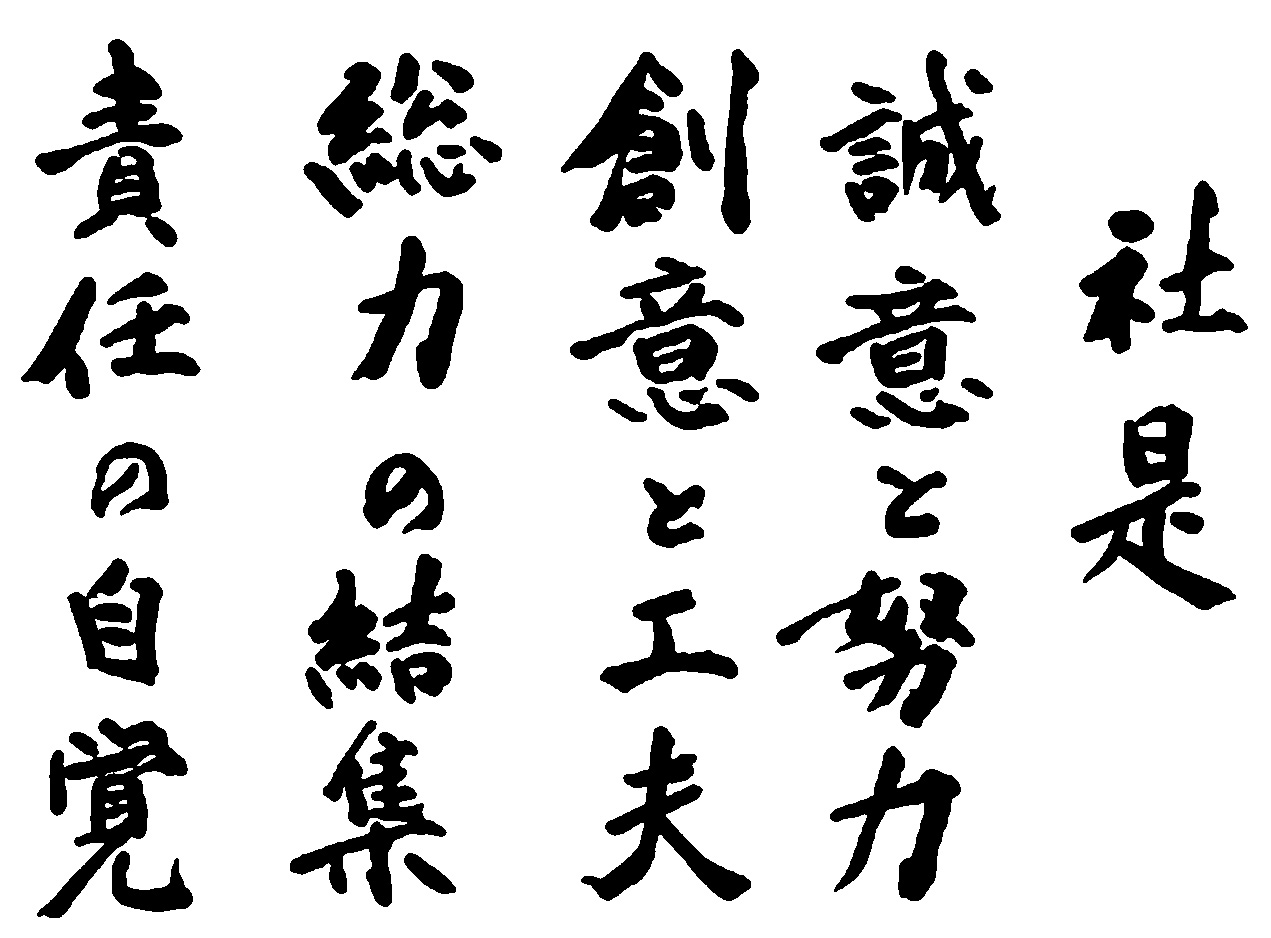 社是
誠意と努力
創意と工夫
総力の結集
責任の自覚